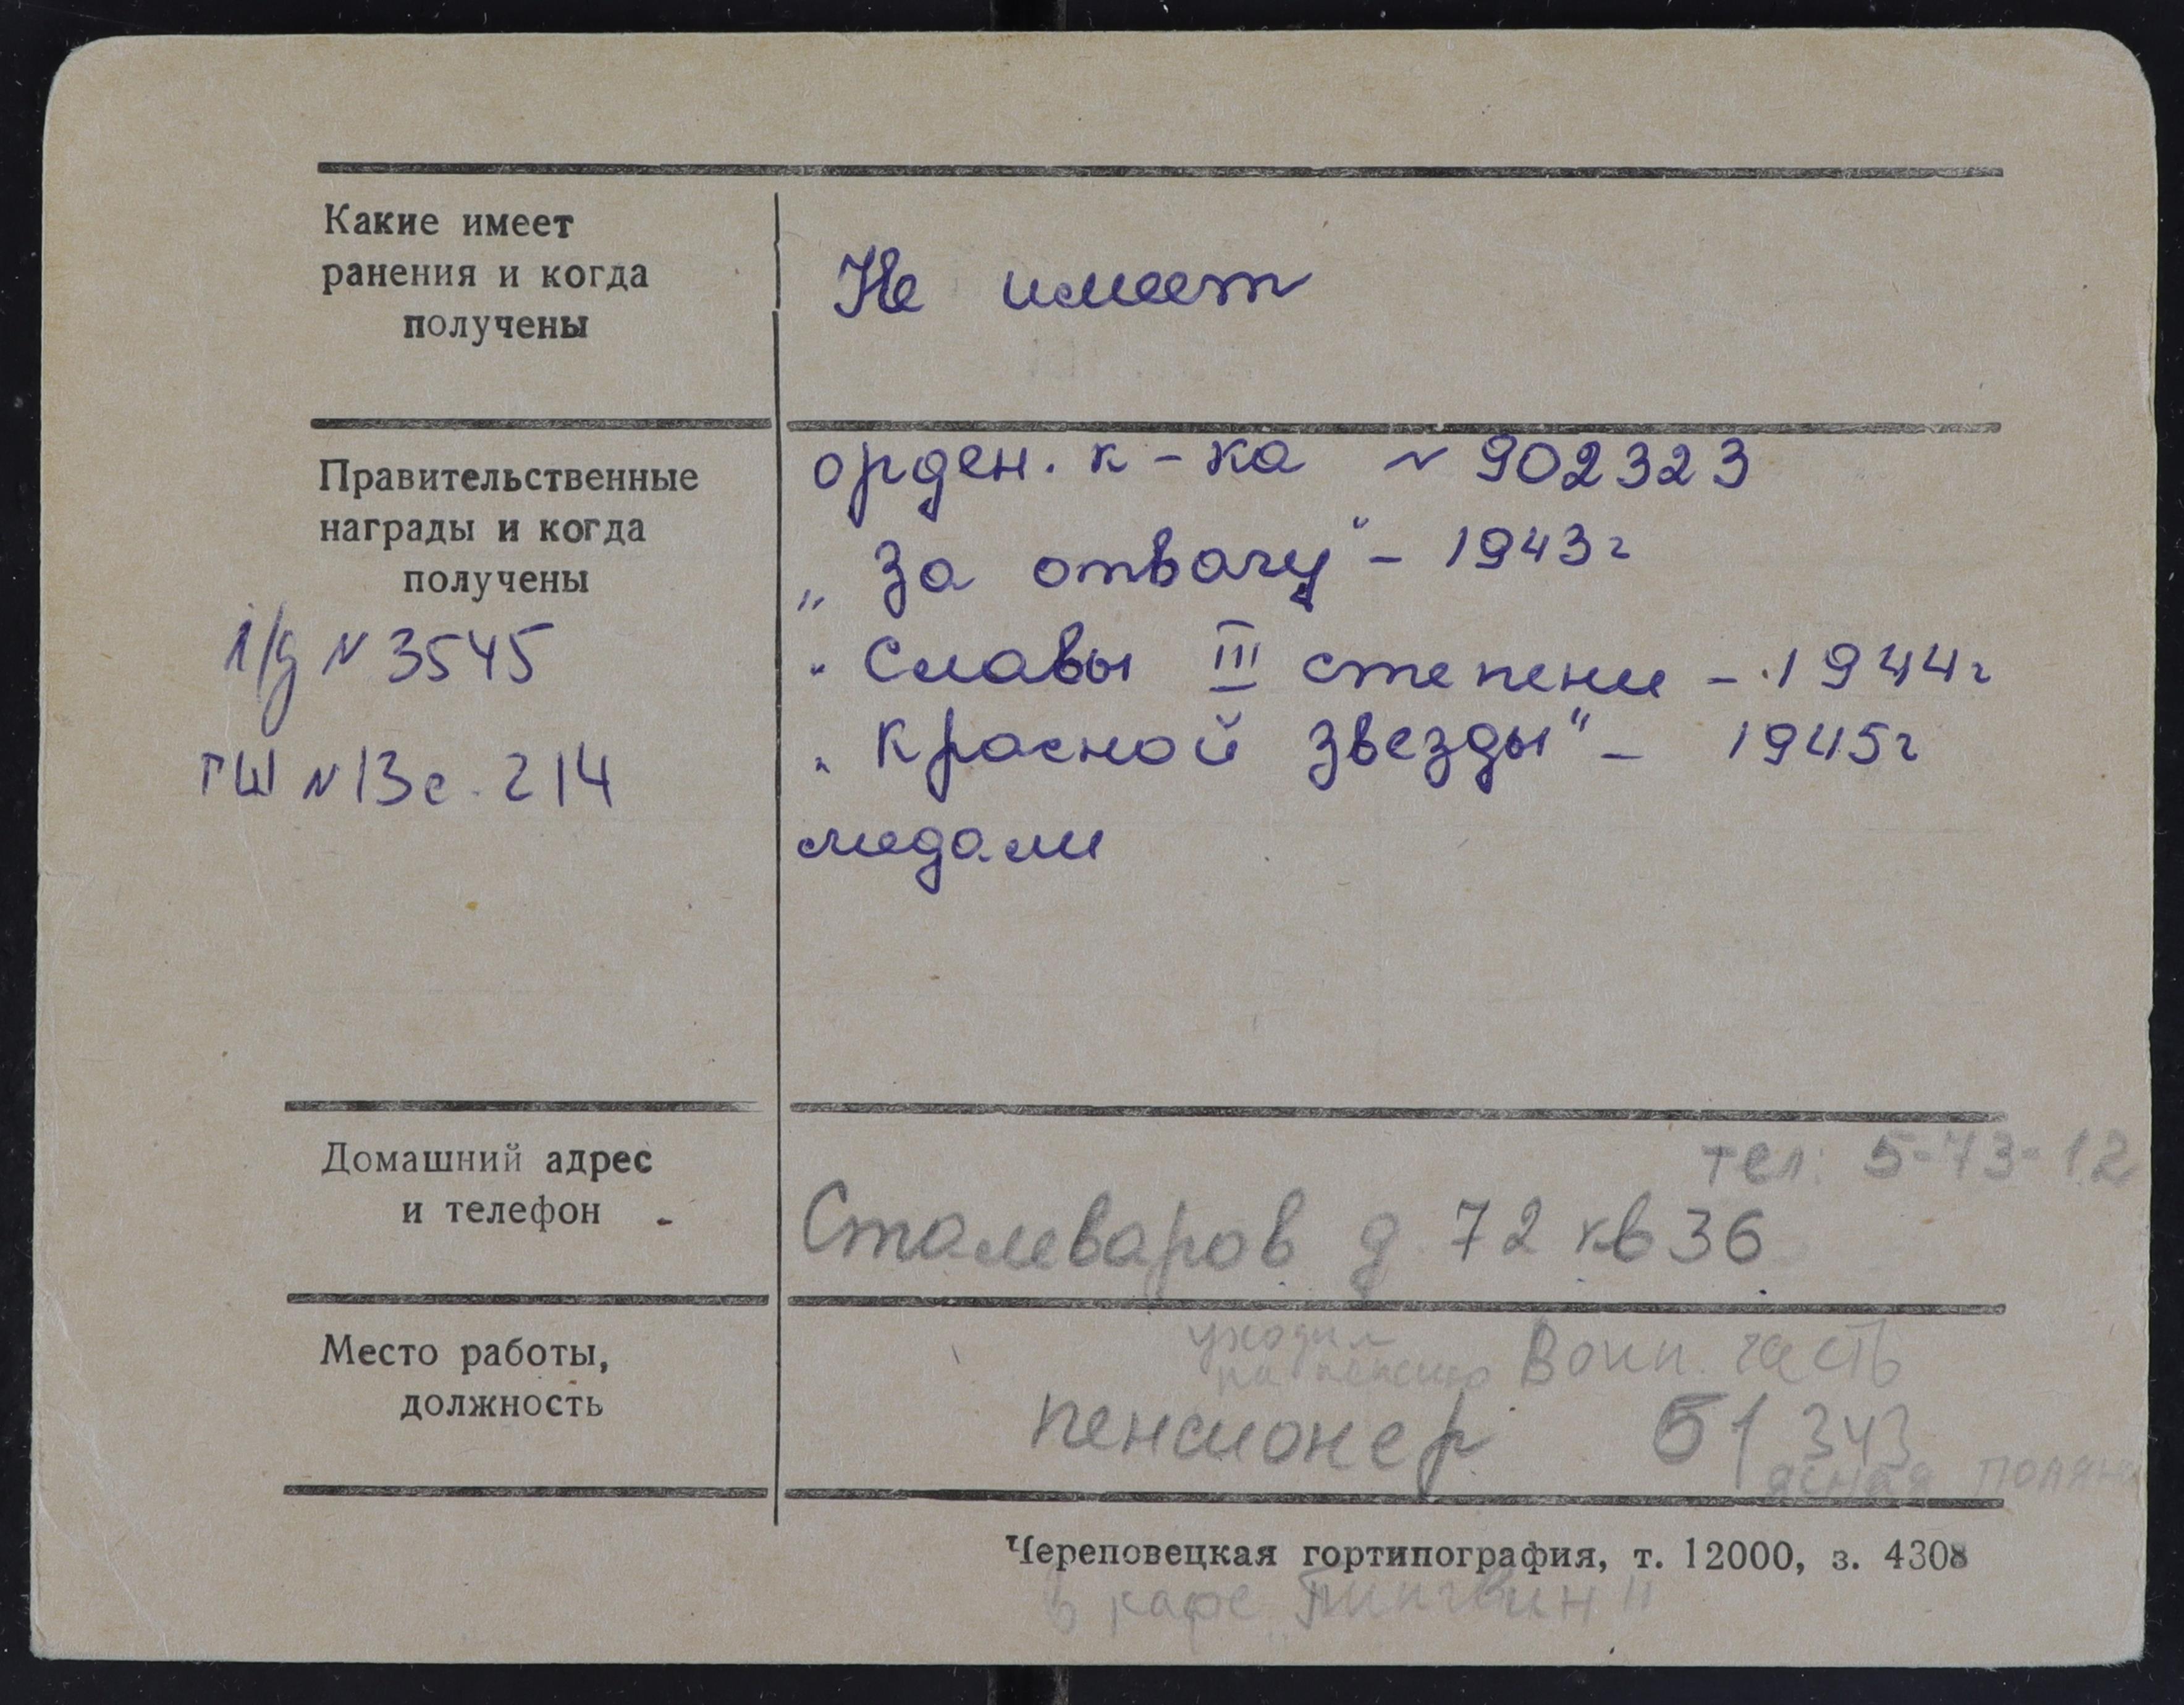 Какие имеет
ранения и когда
получены
Не имеет
Правительственные
награды и когда
получены
л/д № 3545
ГШ № 13 с. 214
орден. к-ка № 902323
„За отвагу" - 1943г
" Славы III степени - 1944г
" Красной Звезды" - 1945г
медали
Домашний адрес
и телефон
тел: 5-73-12
Сталеваров д. 72 кв 36
Место работы,
должность
уходил
на пенсию Воин. часть
пенсионер 51343
ясная поляна
Череповецкая гортипография, т. 12000, з. 4308
в кафе „Пингвин"